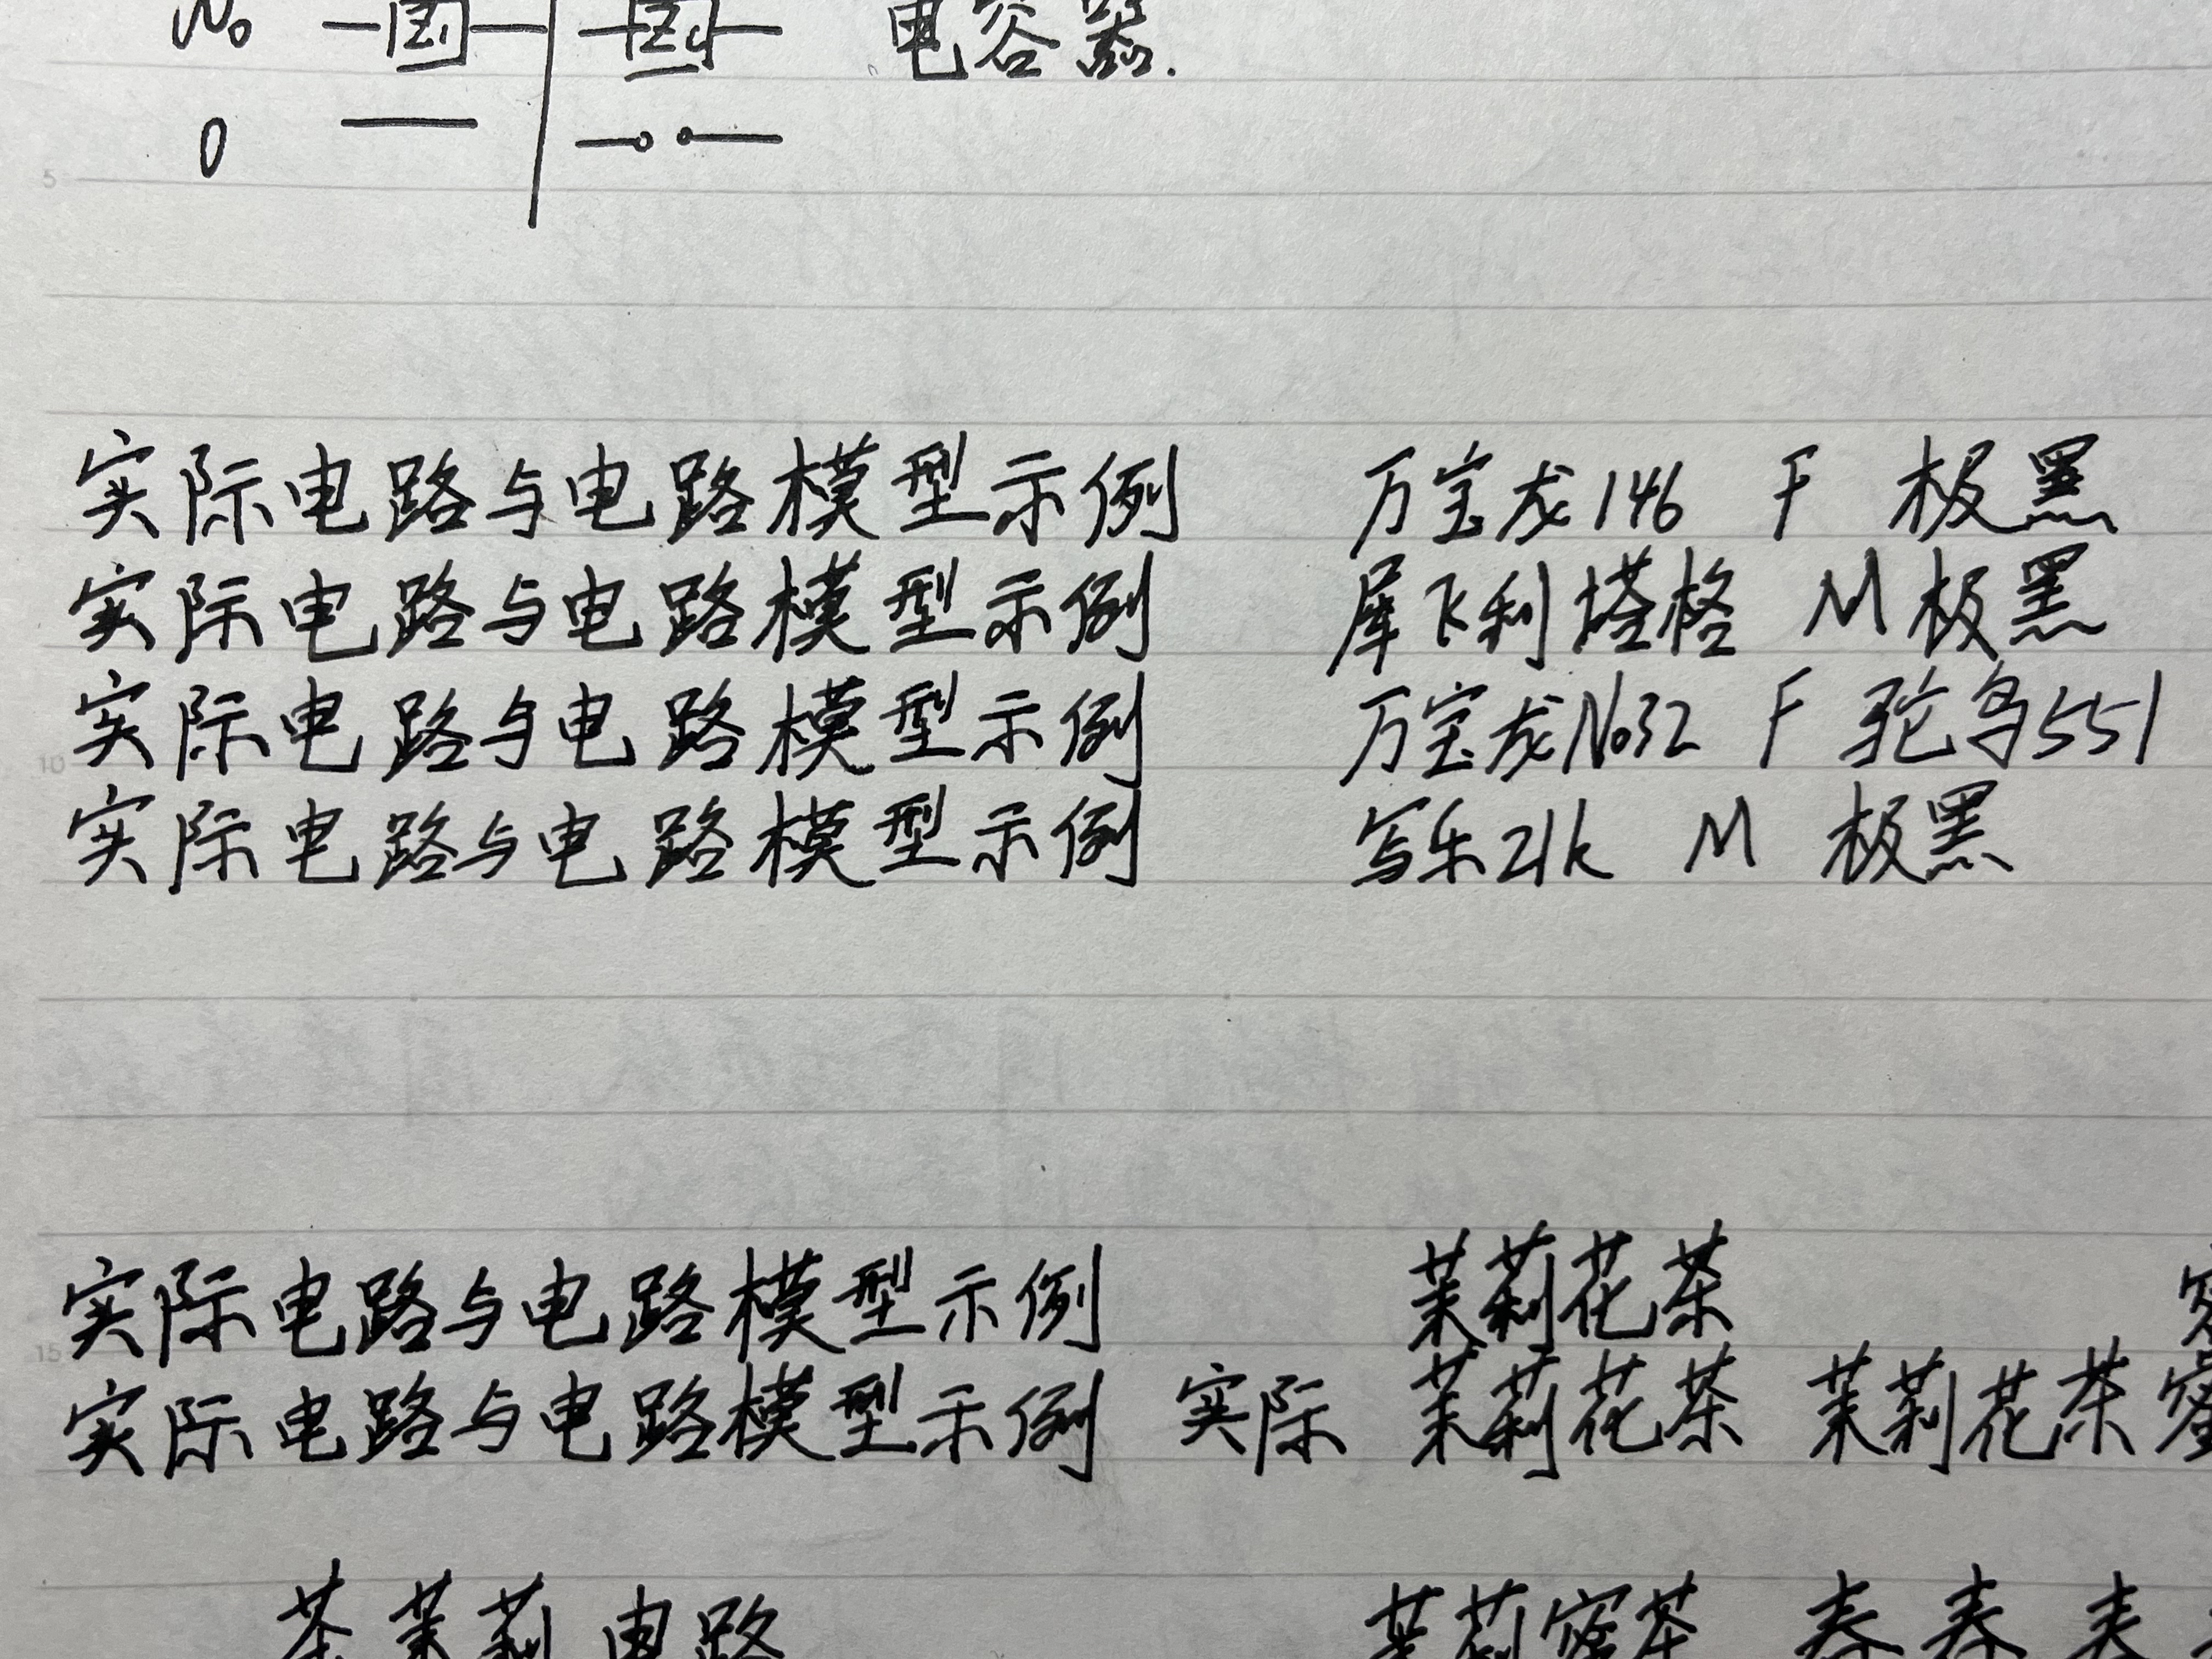 No 电容器.
0
5
实际电路与电路模型示例 万宝龙146 F 极黑
实际电路与电路模型示例 犀飞利塔格 M 极黑
实际电路与电路模型示例 万宝龙No32 F 驼鸟551
10
实际电路与电路模型示例 写乐21k M 极黑
茉莉花茶
实际电路与电路模型示例
15
实际电路与电路模型示例 实际 茉莉花茶 茉莉花茶蜜
茶茉莉 电路 茉莉蜜茶 春春